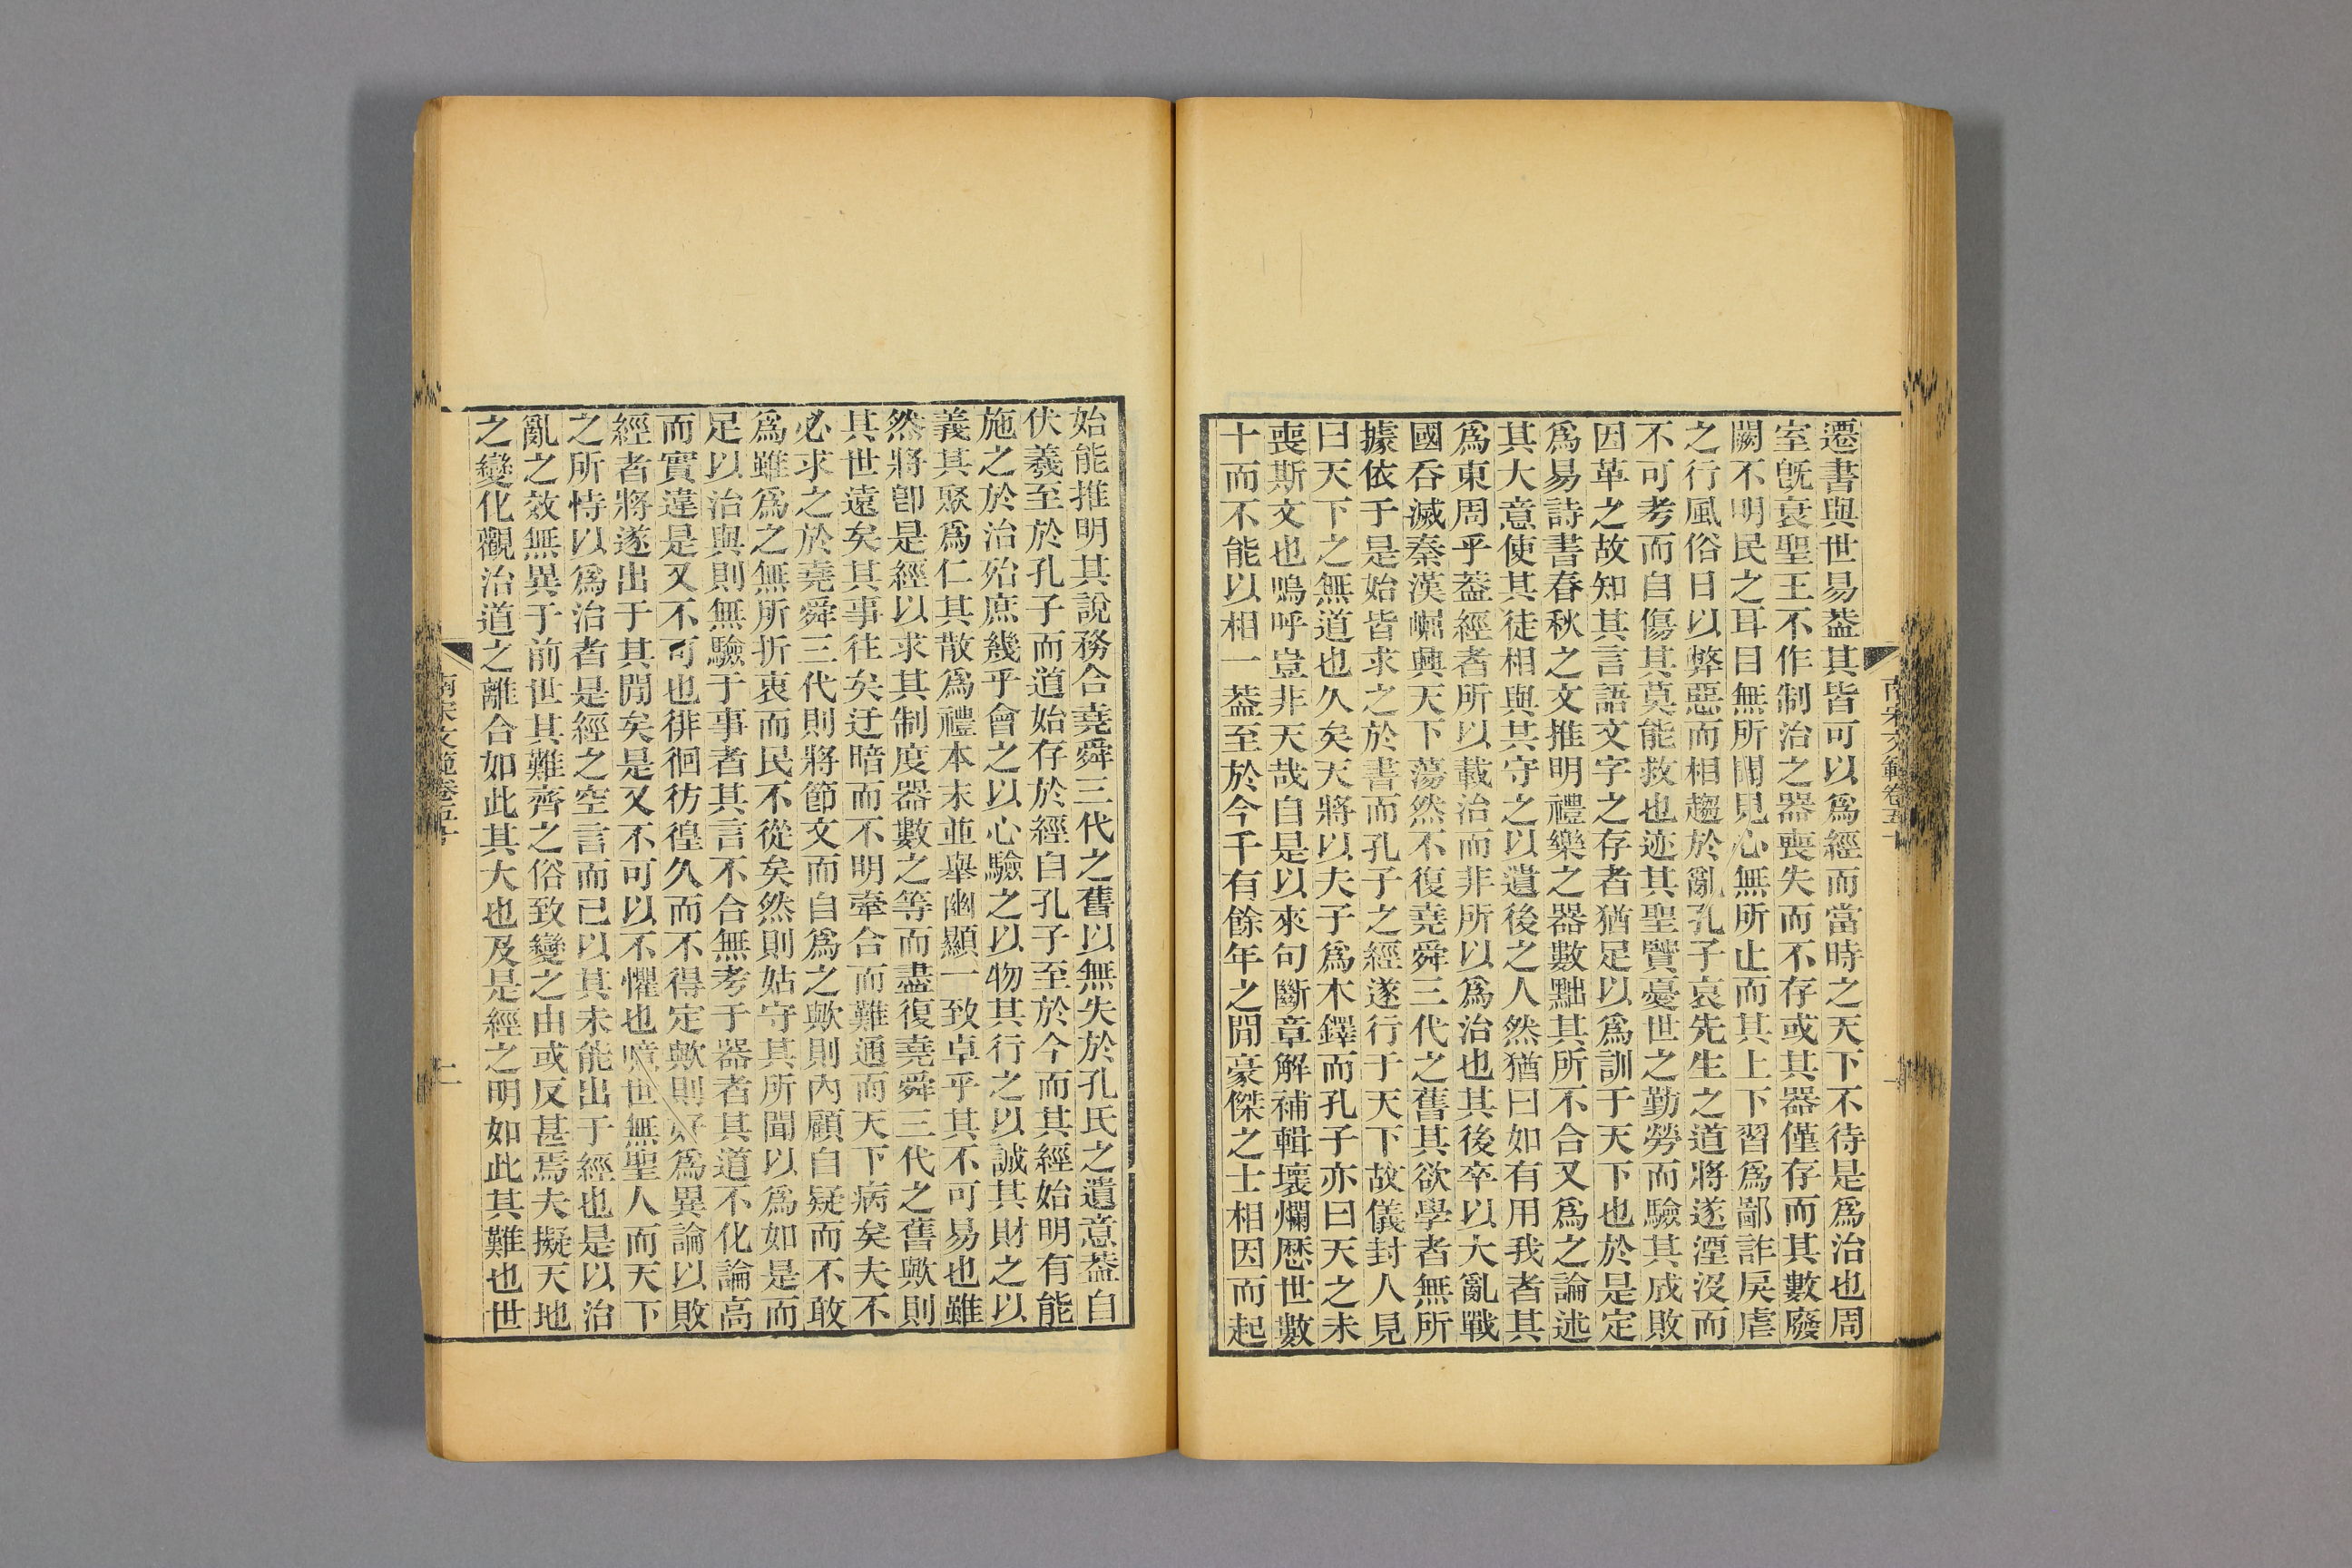 遷書與世易葢其皆可以爲經而當時之天下不待是爲治也周
室旣衰聖王不作制治之器喪失而不存或其器僅存而其數廢
闕不明民之耳目無所聞見心無所止而其上下習爲鄙詐戾虐
之行風俗日以弊惡而相趨於亂孔子哀先生之道將遂湮沒而
不可考而自傷其莫能救也迹其聖賢憂世之勤勞而驗其成敗
因革之故知其言語文字之存者猶足以爲訓于天下也於是定
爲易詩書春秋之文推明禮樂之器數黜其所不合又爲之論述
其大意使其徒相與共守之以遺後之人然猶曰如有用我者其
爲東周乎葢經者所以載治而非所以爲治也其後卒以大亂戰
國吞滅秦漢崛興天下蕩然不復堯舜三代之舊其欲學者無所
據依于是始皆求之於書而孔子之經遂行于天下故儀封人見
曰天下之無道也久矣天將以夫子爲木鐸而孔子亦曰天之未
喪斯文也嗚呼豈非天哉自是以來句斷章解補輯壞爛歷世數
十而不能以相一葢至於今千有餘年之閒豪傑之士相因而起
南宋文範卷五十
始能推明其說務合堯舜三代之舊以無失於孔氏之遺意葢自
伏羲至於孔子而道始存於經自孔子至於今而其經始明有能
施之於治殆庶幾乎會之以心驗之以物其行之以誠其財之以
義其聚爲仁其散爲禮本末並舉幽顯一致卓乎其不可易也雖
然將卽是經以求其制度器數之等而盡復堯舜三代之舊歟則
其世遠矣其事往矣迂暗而不明牽合而難通而天下病矣夫不
必求之於堯舜三代則將節文而自爲之歟則內顧自疑而不敢
爲雖爲之無所折衷而民不從矣然則姑守其所聞以爲如是而
足以治與則無驗于事者其言不合無考于器者其道不化論高
而實違是又不可也徘徊彷徨久而不得定歟則好爲異論以敗
經者將遂出于其閒矣是又不可以不懼也噫世無聖人而天下
之所恃以爲治者是經之空言而已以其未能出于經也是以治
亂之效無異于前世其難齊之俗致變之由或反甚焉夫擬天地
之變化觀治道之離合如此其大也及是經之明如此其難也世
南宋文範卷五十
二